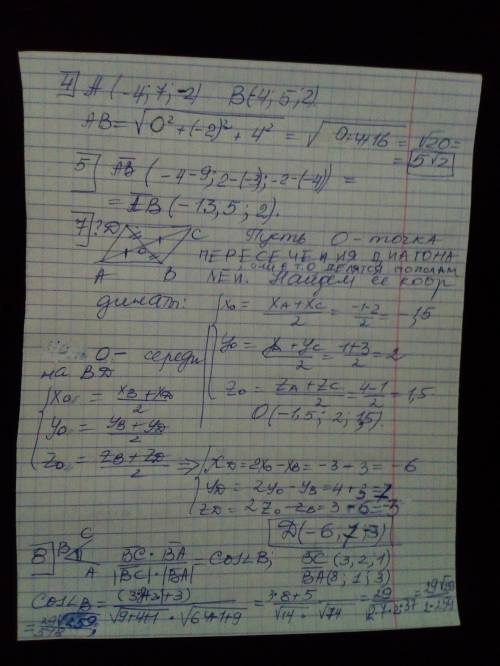 4 A(-4; 7; -2) B(-4; 5; 2)
AB = √(0² + (-2)² + 4²) = √(0+4+16) = √20 =
= 5√2
5 AB (-4-9; 2-(-3); -2-(-4)) =
= AB (-13, 5; 2).
7 ? D C Пусть O - точка
A B ПЕРЕСЕЧЕНИЯ ДИАГОНА
ЛЕЙ. ДЕЛЯТСЯ ПОПОЛАМ
Найдем её коор
динаты:
x₀ = (x_A + x_C)/2 = (-1-2)/2 = -1,5
y₀ = (y + y_C)/2 = (1+3)/2 = 2
z₀ = (z_A + z_C)/2 = (4-1)/2 = 1,5
O(-1,5; 2; 1,5).
O - середи
на BD
x₀ = (x_B + x_D)/2
y₀ = (y_B + y_D)/2
z₀ = (z_B + z_D)/2 ⇒
x_D = 2x₀ - x_B = -3 - 3 = -6
y_D = 2y₀ - y_B = 4 + 3 = 7
z_D = 2z₀ - z_B = 3 - 6 = -3
D(-6, 7, -3)
8 B C A (BC · BA)/(|BC| · |BA|) = cos∠B; BC (3, 2, 1)
BA (8; 1; 3)
cos∠B = /(√(9+4+1) · √(64+1+9)) = (3·8+5)/(√14 · √74) = 29/